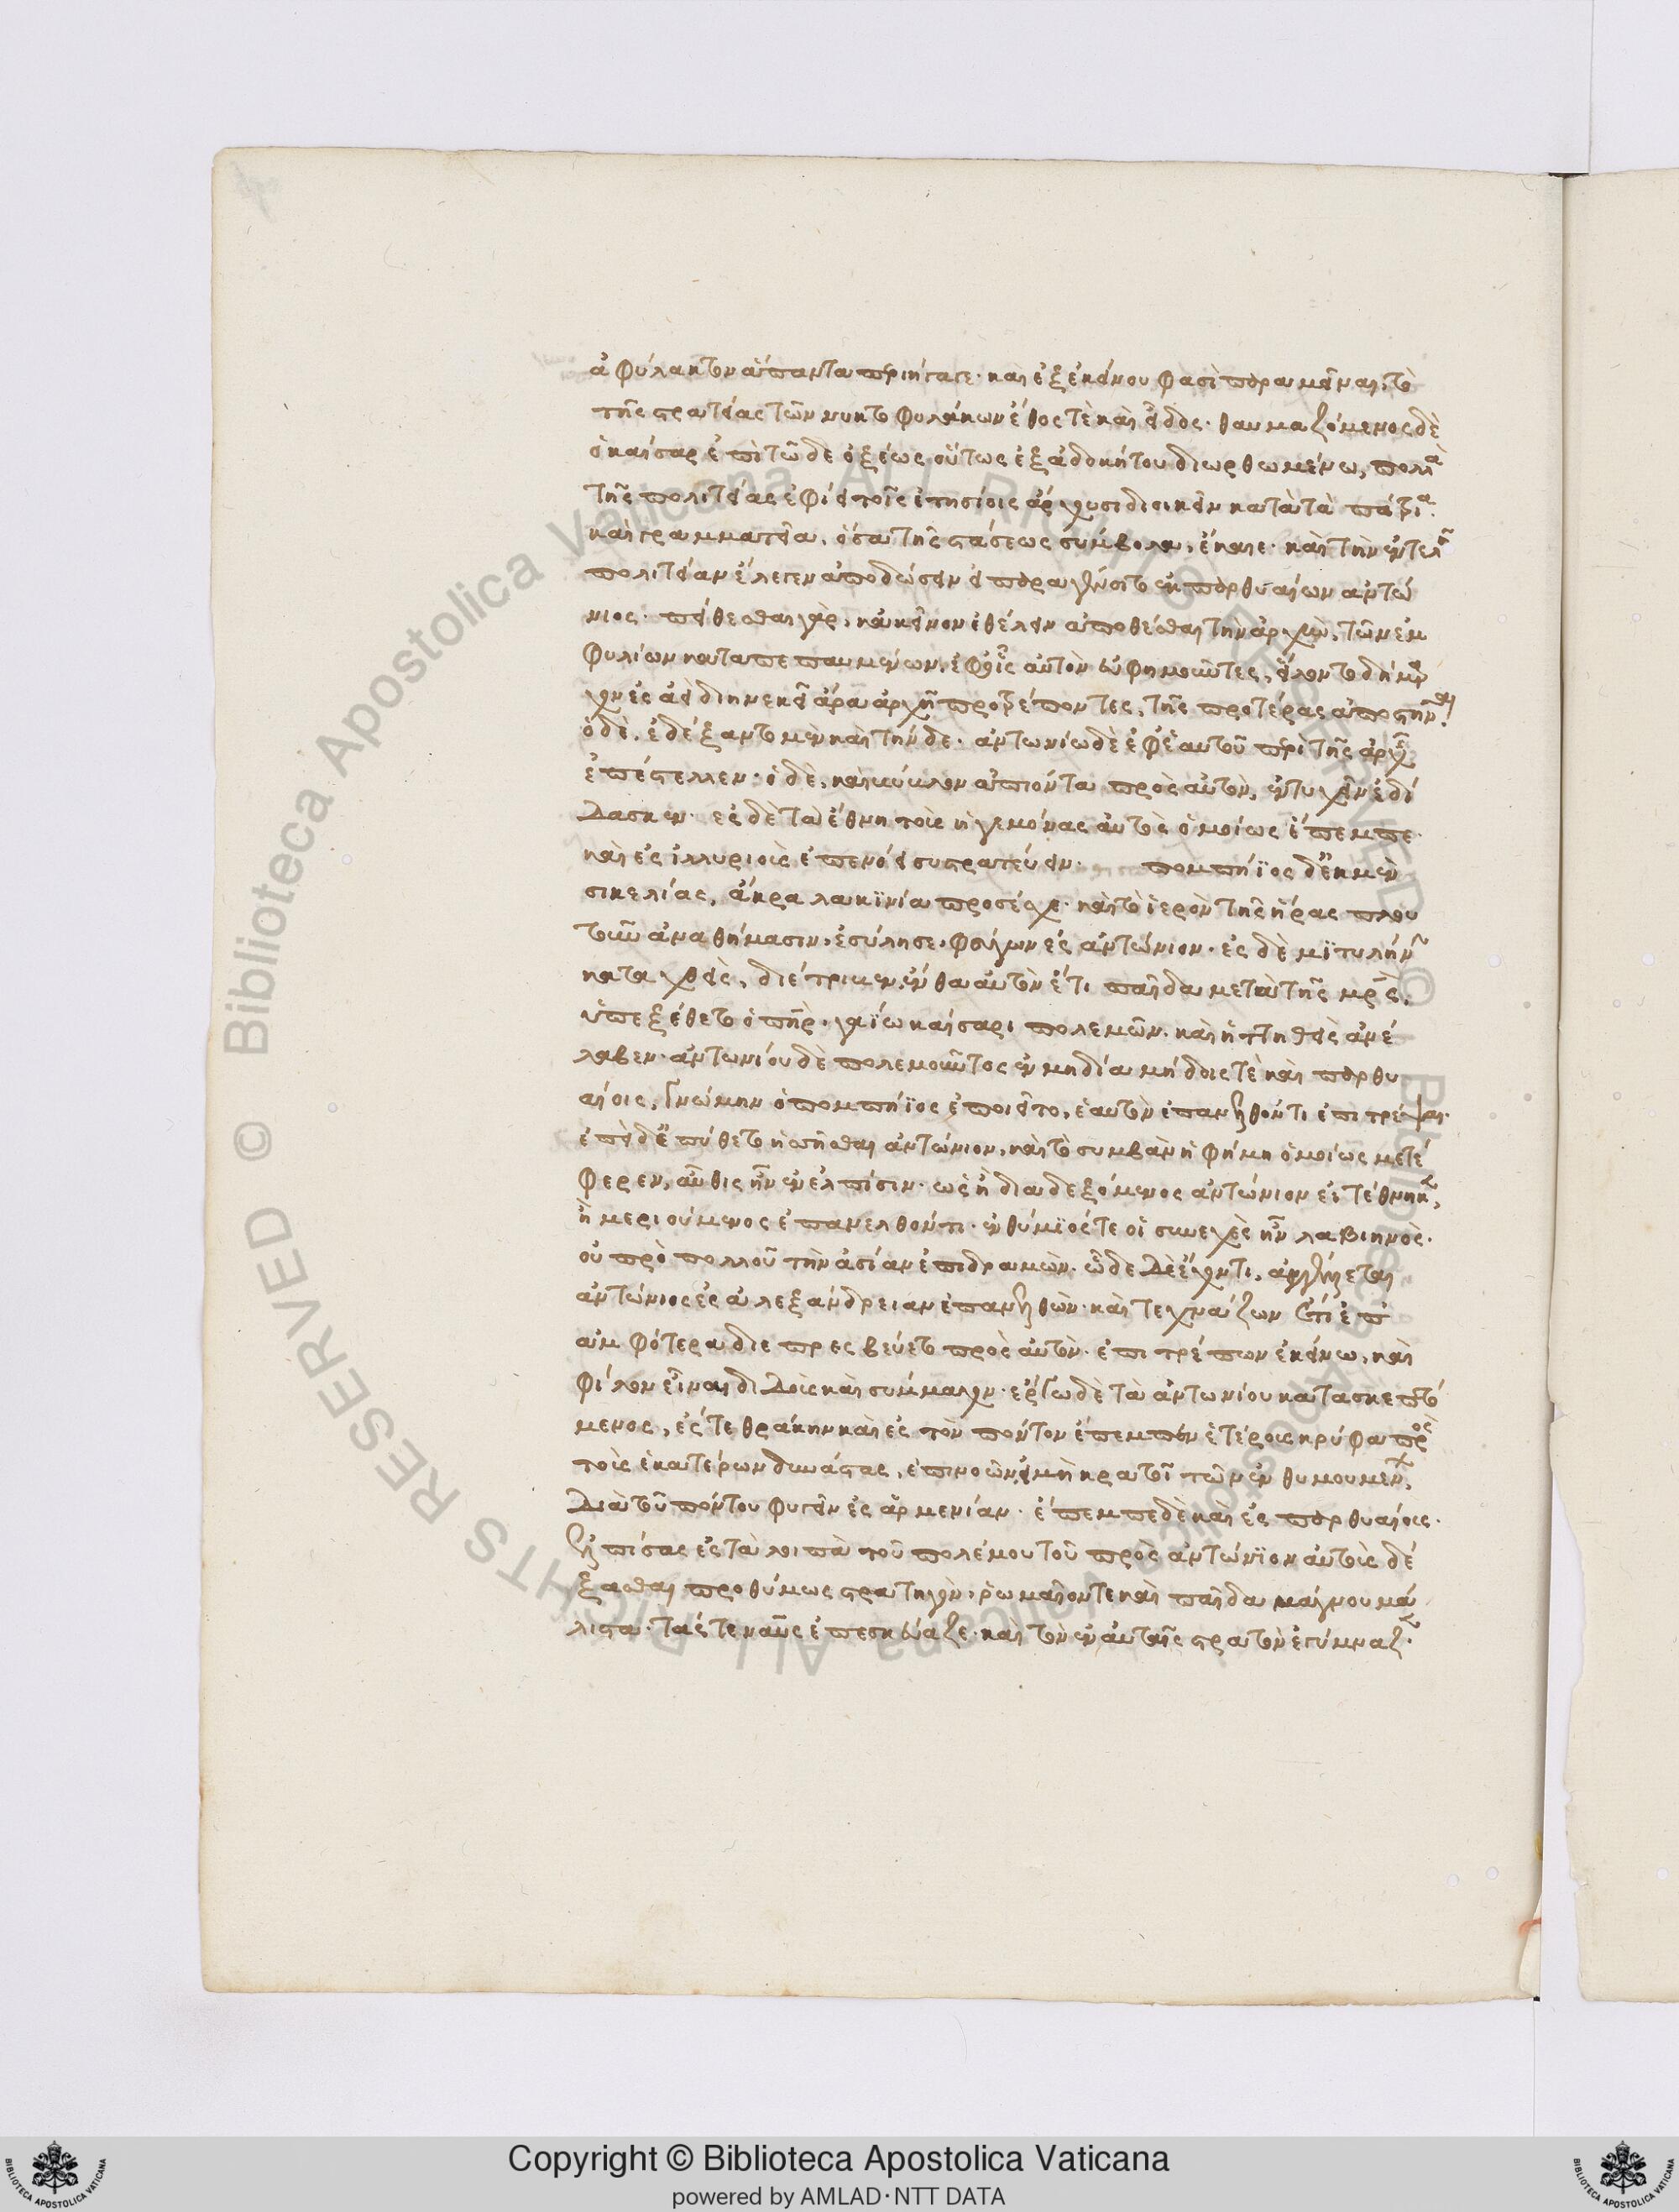 ἀφύλακτον ἅπαντα περιήγαγε. καὶ ἐξ ἐκείνου φασὶ παραμεῖναι, τὸ
τῆς στρατείας τῶν νυκτοφυλάκων ἔθος τὲ καὶ εἶδος. θαυμαζόμενος δὲ
ὁ καίσαρ ἐπὶ τῶδε ὀξέως οὕτως ἐξ ἀδοκήτου διωρθωμένω, πολλὰ
τῆς πολιτείας ἐφίει τοῖς ἐτησίοις ἄρχουσι διοικεῖν κατὰ τὰ πάτρια.
καὶ γραμματεῖα, ὅσα τῆς στάσεως σύμβολα, ἔκαιε. καὶ τὴν ἐντελῆ
πολιτείαν ἔλεγεν ἀποδώσειν εἰ παραγένοιτο ἐκ παρθυαίων ἀντώ
νιος. πείθεσθαι γὰρ, κἀκεῖνον ἐθέλειν ἀποθέσθαι τὴν ἀρχὴν, τῶν ἐμ
φυλίων καταπεπαυμένων, ἐφ' οἷς αὐτὸν εὐφημοῦντες, εἵλοντο δήμαρ
χον ἐς ἀεὶ διηνεκεῖ ἄρα ἀρχῆ προτρέποντες, τῆς προτέρας ἀποστῆναι.
ὁ δὲ, ἐδέξαντο μὲν καὶ τήνδε. ἀντωνίω δὲ ἐφ' ἑαυτοῦ περὶ τῆς ἀρχῆς
ἐπέστελλεν. ὁ δὲ, καὶ κύκλον ἀπιόντα πρὸς αὐτὸν, ἐντυχεῖν ἐδί
δασκεν. ἐς δὲ τὰ ἔθνη τοὺς ἡγεμόνας αὐτὸς ὁμοίως ἔπεμπε.
καὶ ἐς ἰλλυριοὺς ἐπενόει συστρατεύειν. πομπήϊος δ' ἐκ μὲν
σικελίας, ἄκρα λακϊνία προσέσχε. καὶ τὸ ἱερὸν τῆς ἥρας πλου
τοῦν ἀναθήμασιν, ἐσύλησε, φεύγων ἐς ἀντώνιον. ἐς δὲ μϊτυλήνην
καταχθεὶς, διέτριψεν, ἔνθα αὐτὸν ἔτι παῖδα μετὰ τῆς μρ̅ὸς,
ὑπεξέθετο ὁ πηρ, γαΐω καίσαρι πολεμῶν. καὶ ἡττηθεὶς ἀνέ
λαβεν. ἀντωνίου δὲ πολεμοῦντος ἐν μηδία μήδοις τὲ καὶ παρθυ
αίοις, γνώμην ὁ πομπήϊος ἐποιεῖτο, ἑαυτὸν ἐπανελθόντι ἐπιτρέψαι.
ἐπεὶ δ' ἐπύθετο ἡττῆσθαι ἀντώνιον, καὶ τὸ συμβὰν ἡ φήμη ὁμοίως μετέ
φερεν, αὖθις ἦν ἐν ἐλπίσιν. ὡς ἢ διαδεξόμενος ἀντώνιον εἰ τέθνηκεν,
ἢ μεριούμενος ἐπανελθόντι. ἐνθύμϊός τε οἱ συνεχὲς ἦν λαβιηνὸς.
οὐ πρὸ πολλοῦ τὴν ἀσίαν ἐπιδραμὼν. ὧδε δὲ ἔχοντι, ἀγγέλλεται
ἀντώνιος ἐς ἀλεξάνδρειαν ἐπανελθὼν. καὶ τεχνάζων ἔτι ἐπ'
ἀμφότερα διεπρεσβεύετο πρὸς αὐτὸν. ἐπιτρέπων ἐκείνω, καὶ
φίλον εἶναι διδοὺς καὶ σύμμαχον. ἔργω δὲ τὰ ἀντωνίου κατασκεπτό
μενος, ἔς τε θράκην καὶ ἐς τὸν πόντον ἔπεμπεν ἑτέρους κρύφα πρὸς
τοὺς ἑκατέρων δυνάστας, ἐπινοῶν εἰ μὴ κρατοῖ τῶν ἐνθυμουμένων,
διὰ τοῦ πόντου φυγεῖν ἐς ἀρμενίαν. ἔπεμπε δὲ καὶ ἐς παρθυαίους.
ἐλπίσας ἐς τὰ λοιπὰ τοῦ πολέμου τοῦ πρὸς ἀντώνϊον αὐτοὺς δέ
ξασθαι προθύμως στρατηγὸν, ῥωμαῖόν τε καὶ παῖδα μάγνου μά
λιστα. τάς τε ναῦς ἐπεσκεύαζε. καὶ τὸν ἐν αὐταῖς στρατὸν ἐγύμναζε.
Copyright © Biblioteca Apostolica Vaticana
powered by AMLAD·NTT DATA
Biblioteca Apostolica Vaticana ALL RIGHTS RESERVED ©